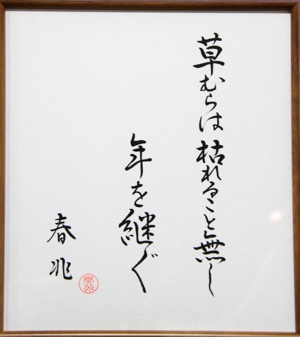 草むらは枯れること無し
年を継ぐ
春兆